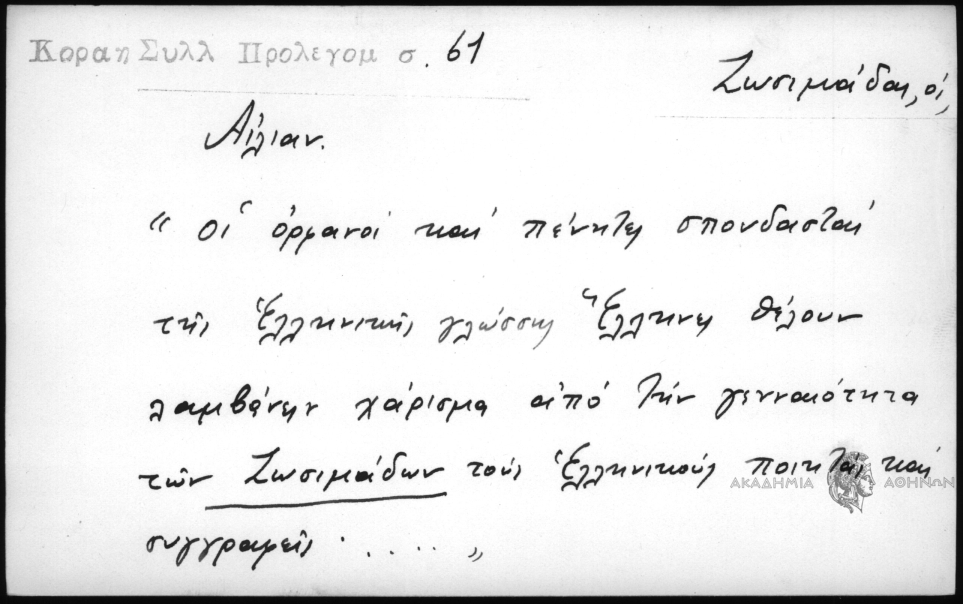 Κοραη Συλλ Προλεγομ σ. 61
Ζωσιμάδαι, οἱ,
Αἰλιαν.
“ οἱ ὀρφανοί καί πένητες σπουδασταί
τῆς Ἑλληνικῆς γλώσσης Ἕλληνες θέλουν
λαμβάνειν χάρισμα ἀπό τήν γενναιότητα
τῶν Ζωσιμάδων τούς Ἑλληνικούς ποιητάς καί
συγγραφεῖς . . . . . „
ΑΚΑΔΗΜΙΑ ΑΘΗΝΩΝ